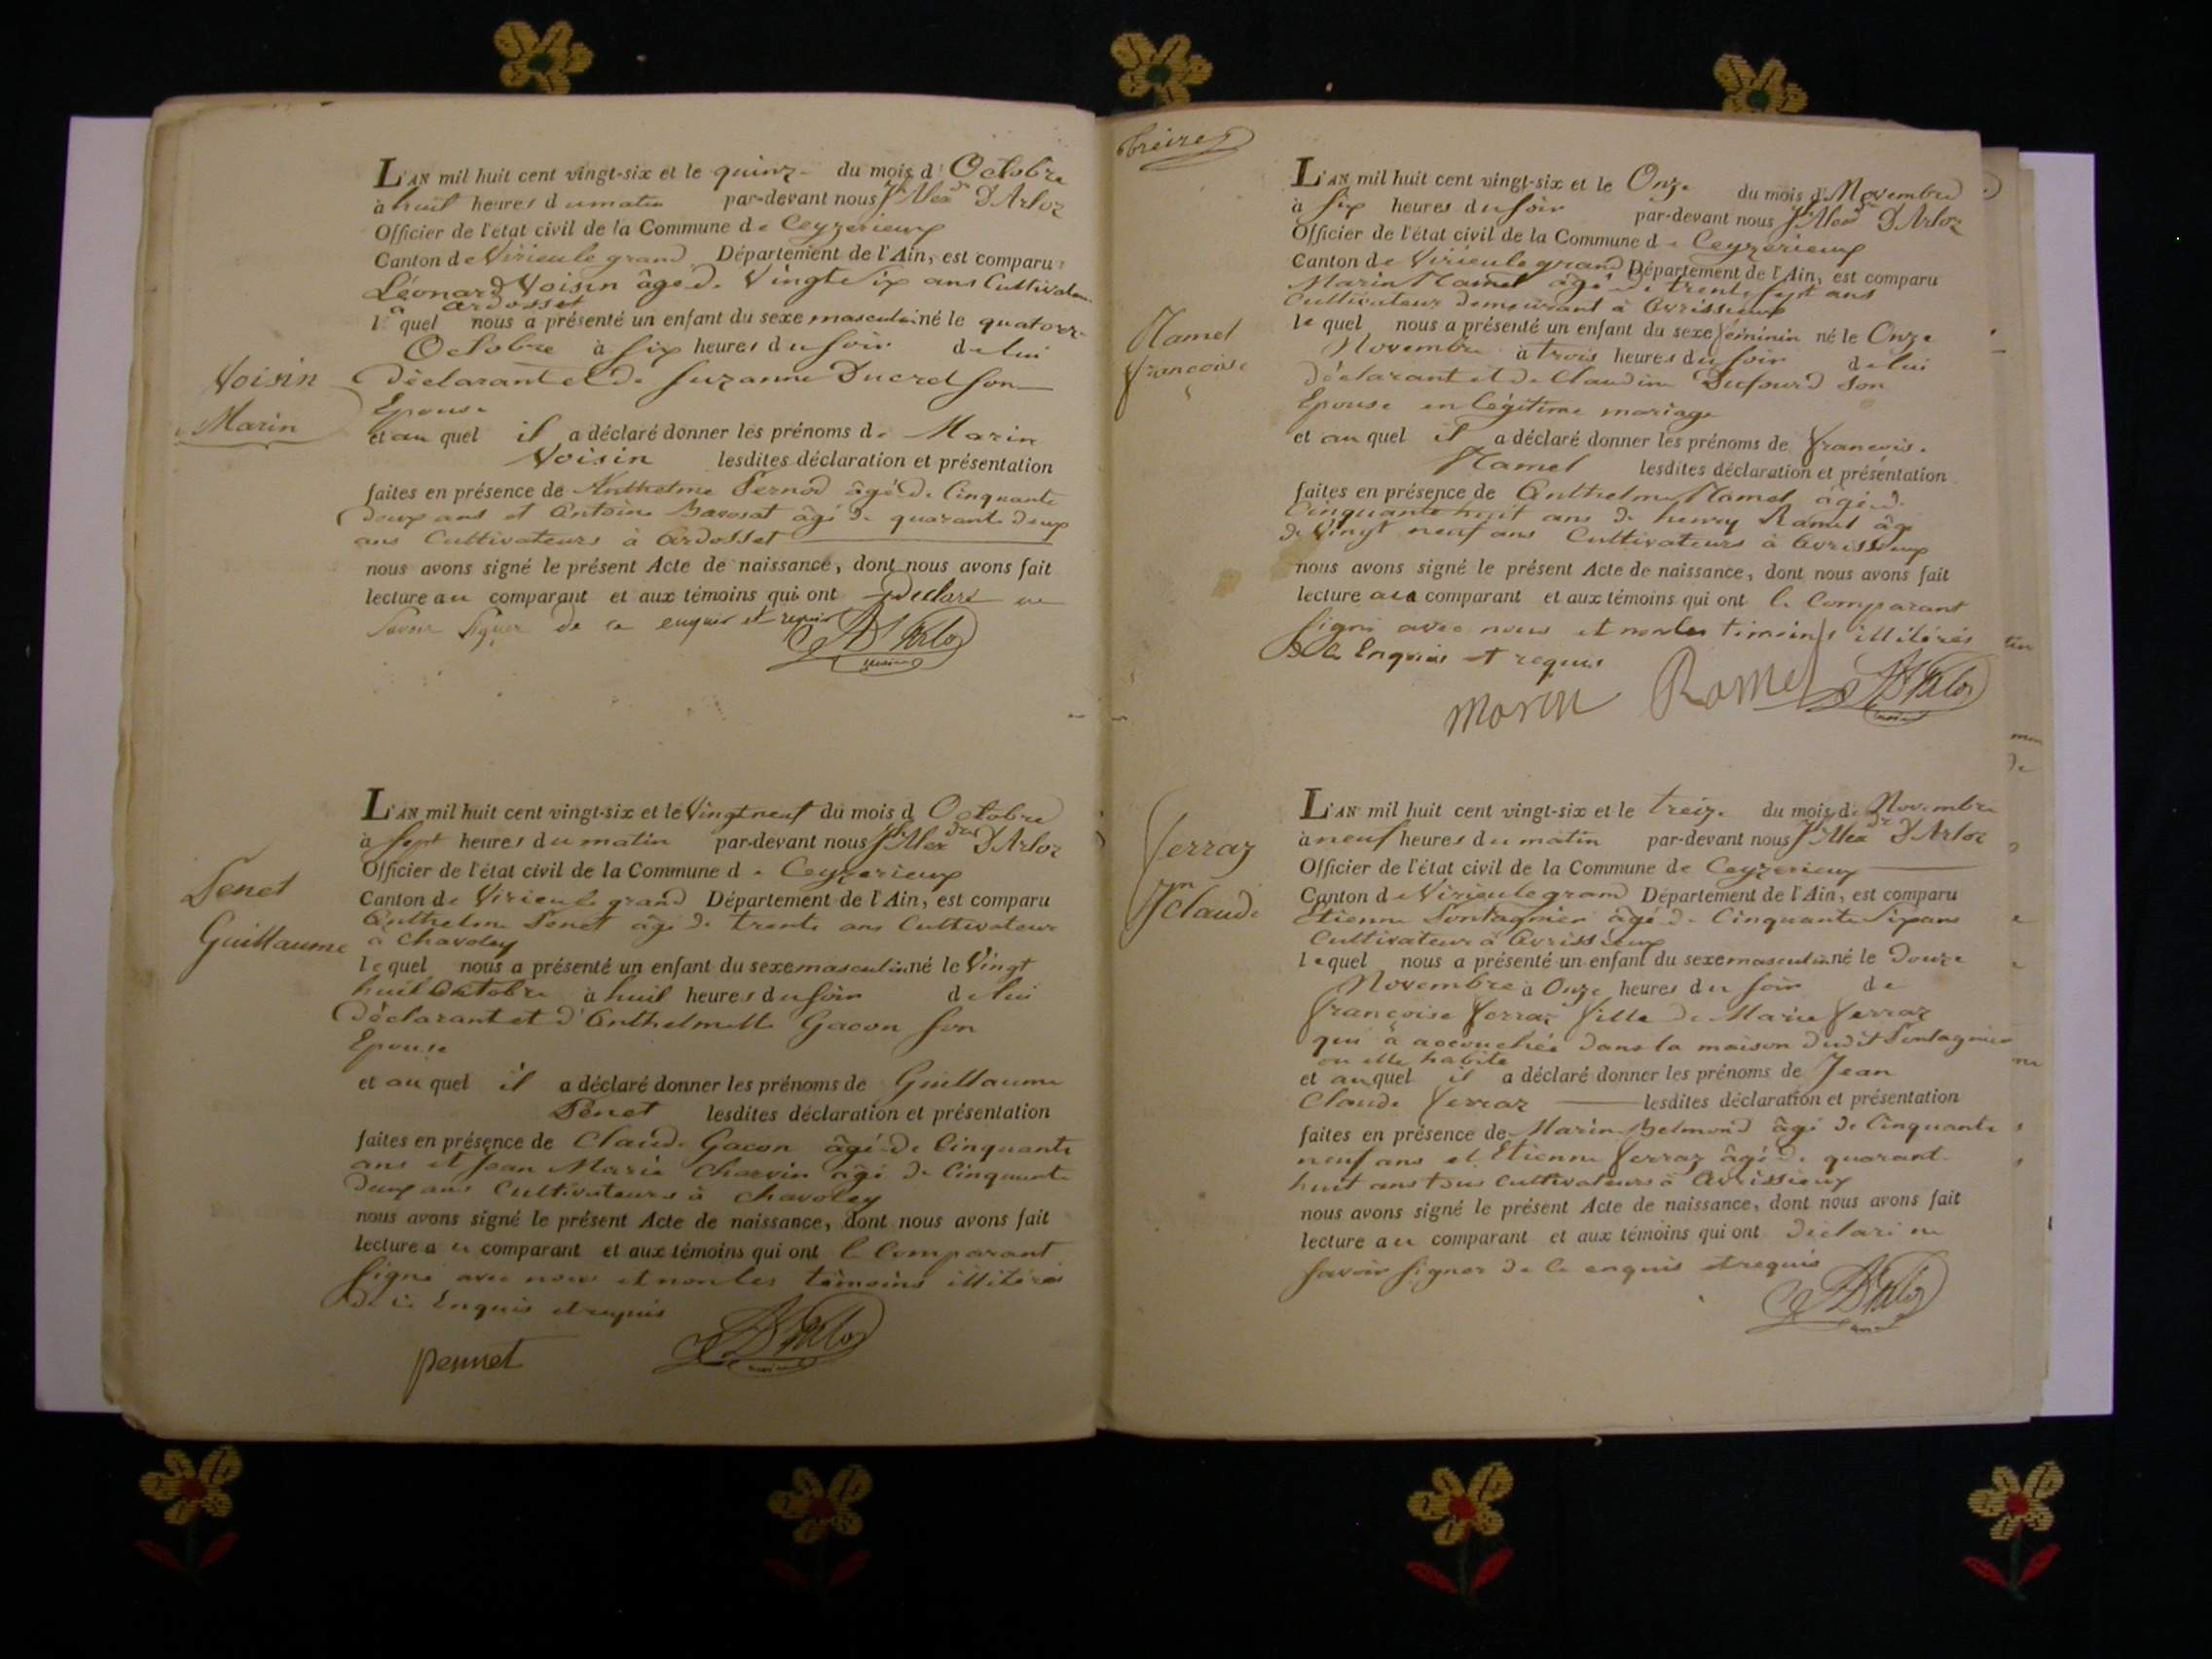 Voisin
Marin
L'AN mil huit cent vingt-six et le quinze du mois d'Octobre
à huit heures du matin par-devant nous Jh Alexdre D'Arloz
Officier de l'état civil de la Commune de Ceyzerieux
Canton de Virieu le grand Département de l'Ain, est comparu
Léonard Voisin âgé de Vingt Six ans Cultivateur
à ardosset
lequel nous a présenté un enfant du sexe masculin né le quatorze
Octobre à six heures du soir de lui
déclarant et de Suzanne Ducret son
Epouse
et au quel il a déclaré donner les prénoms de Marin
Voisin lesdites déclaration et présentation
faites en présence de Anthelme Pernod âgé de Cinquante
deux ans et Antoine Bavosat âgé de quarante deux
ans Cultivateurs à Ardosset
nous avons signé le présent Acte de naissance, dont nous avons fait
lecture au comparant et aux témoins qui ont déclaré ne
savoir signer de ce enquis et requis
Penet
Guillaume
L'AN mil huit cent vingt-six et le Vingt neuf du mois d Octobre
à sept heures du matin par-devant nous Jh Alexdre D'Arloz
Officier de l'état civil de la Commune de Ceyzerieux
Canton de Virieu le grand Département de l'Ain, est comparu
Anthelme Penet âgé de trente ans Cultivateur
à Chavoley
lequel nous a présenté un enfant du sexe masculin né le Vingt
huit Octobre à huit heures du soir de lui
Déclarant et d'Anthelmette Gacon son
Epouse
et au quel il a déclaré donner les prénoms de Guillaume
Penet lesdites déclaration et présentation
faites en présence de Claude Gacon âgé de Cinquante
ans et Jean Marie Charvin âgé de Cinquante
deux ans Cultivateurs à Chavoley
nous avons signé le présent Acte de naissance, dont nous avons fait
lecture au comparant et aux témoins qui ont le Comparant
signé avec nous et non les témoins illitérés
de ce Enquis et requis
pennet
Ramel
françoise
L'AN mil huit cent vingt-six et le Onze du mois de Novembre
à six heures du soir par-devant nous Jh Alexdre D'Arloz
Officier de l'état civil de la Commune de Ceyzerieux
Canton de Virieu le grand Département de l'Ain, est comparu
Marin Ramel âgé de trente sept ans
Cultivateur demeurant à Avrissieux
lequel nous a présenté un enfant du sexe féminin né le Onze
Novembre à trois heures du soir de lui
déclarant et de Claudine Dufourd son
Epouse en légitime mariage
et au quel il a déclaré donner les prénoms de francoise
Ramel lesdites déclaration et présentation
faites en présence de Anthelme Ramel âgé de
Cinquante huit ans de henry Ramel âgé
de Vingt neuf ans Cultivateurs à Avrissieux
nous avons signé le présent Acte de naissance, dont nous avons fait
lecture au comparant et aux témoins qui ont le Comparant
signé avec nous et non les témoins illitérés
de ce Enquis et requis
maren Ramel
ferraz
Jn claude
L'AN mil huit cent vingt-six et le treize du mois de Novembre
à neuf heures du matin par-devant nous Jh Alexdre D'Arloz
Officier de l'état civil de la Commune de Ceyzerieux
Canton de Virieu le grand Département de l'Ain, est comparu
Etienne Pontagnier âgé de Cinquante Six ans
Cultivateur à Avrissieux
lequel nous a présenté un enfant du sexe masculin né le Douze
Novembre à Onze heures du soir de
françoise ferraz fille de Marie ferraz
qui a accouchée dans la maison dudit Pontagnier
ou elle habite
et au quel il a déclaré donner les prénoms de Jean
Claude ferraz lesdites déclaration et présentation
faites en présence de Marin Belmond âgé de Cinquante
neuf ans et Etienne ferraz âgé de quarante
huit ans tous Cultivateurs à Avrissieux
nous avons signé le présent Acte de naissance, dont nous avons fait
lecture au comparant et aux témoins qui ont déclaré ne
savoir signer de ce enquis et requis